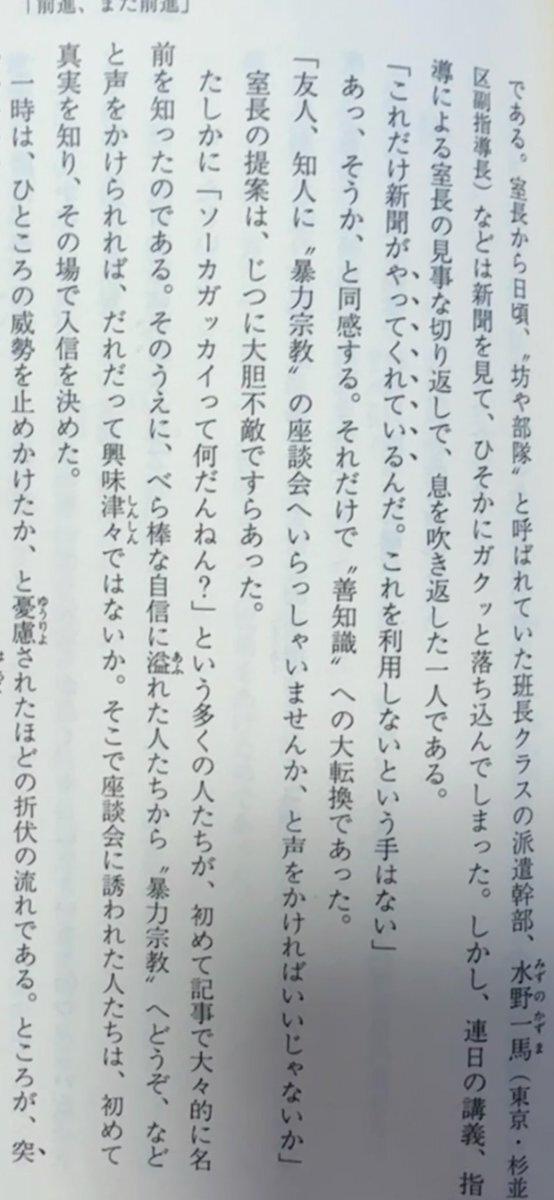 「前進、また前進」
である。室長から日頃、〝坊や部隊〟と呼ばれていた班長クラスの派遣幹部、水野一馬（東京・杉並
区副指導長）などは新聞を見て、ひそかにガクッと落ち込んでしまった。しかし、連日の講義、指
導による室長の見事な切り返しで、息を吹き返した一人である。
「これだけ新聞がやってくれているんだ。これを利用しないという手はない」
あっ、そうか、と同感する。それだけで〝善知識〟への大転換であった。
「友人、知人に〝暴力宗教〟の座談会へいらっしゃいませんか、と声をかければいいじゃないか」
室長の提案は、じつに大胆不敵ですらあった。
たしかに「ソーカガッカイって何だんねん？」という多くの人たちが、初めて記事で大々的に名
前を知ったのである。そのうえに、べら棒な自信に溢れた人たちから〝暴力宗教〟へどうぞ、など
と声をかけられれば、だれだって興味津々ではないか。そこで座談会に誘われた人たちは、初めて
真実を知り、その場で入信を決めた。
一時は、ひところの威勢を止めかけたか、と憂慮されたほどの折伏の流れである。ところが、突